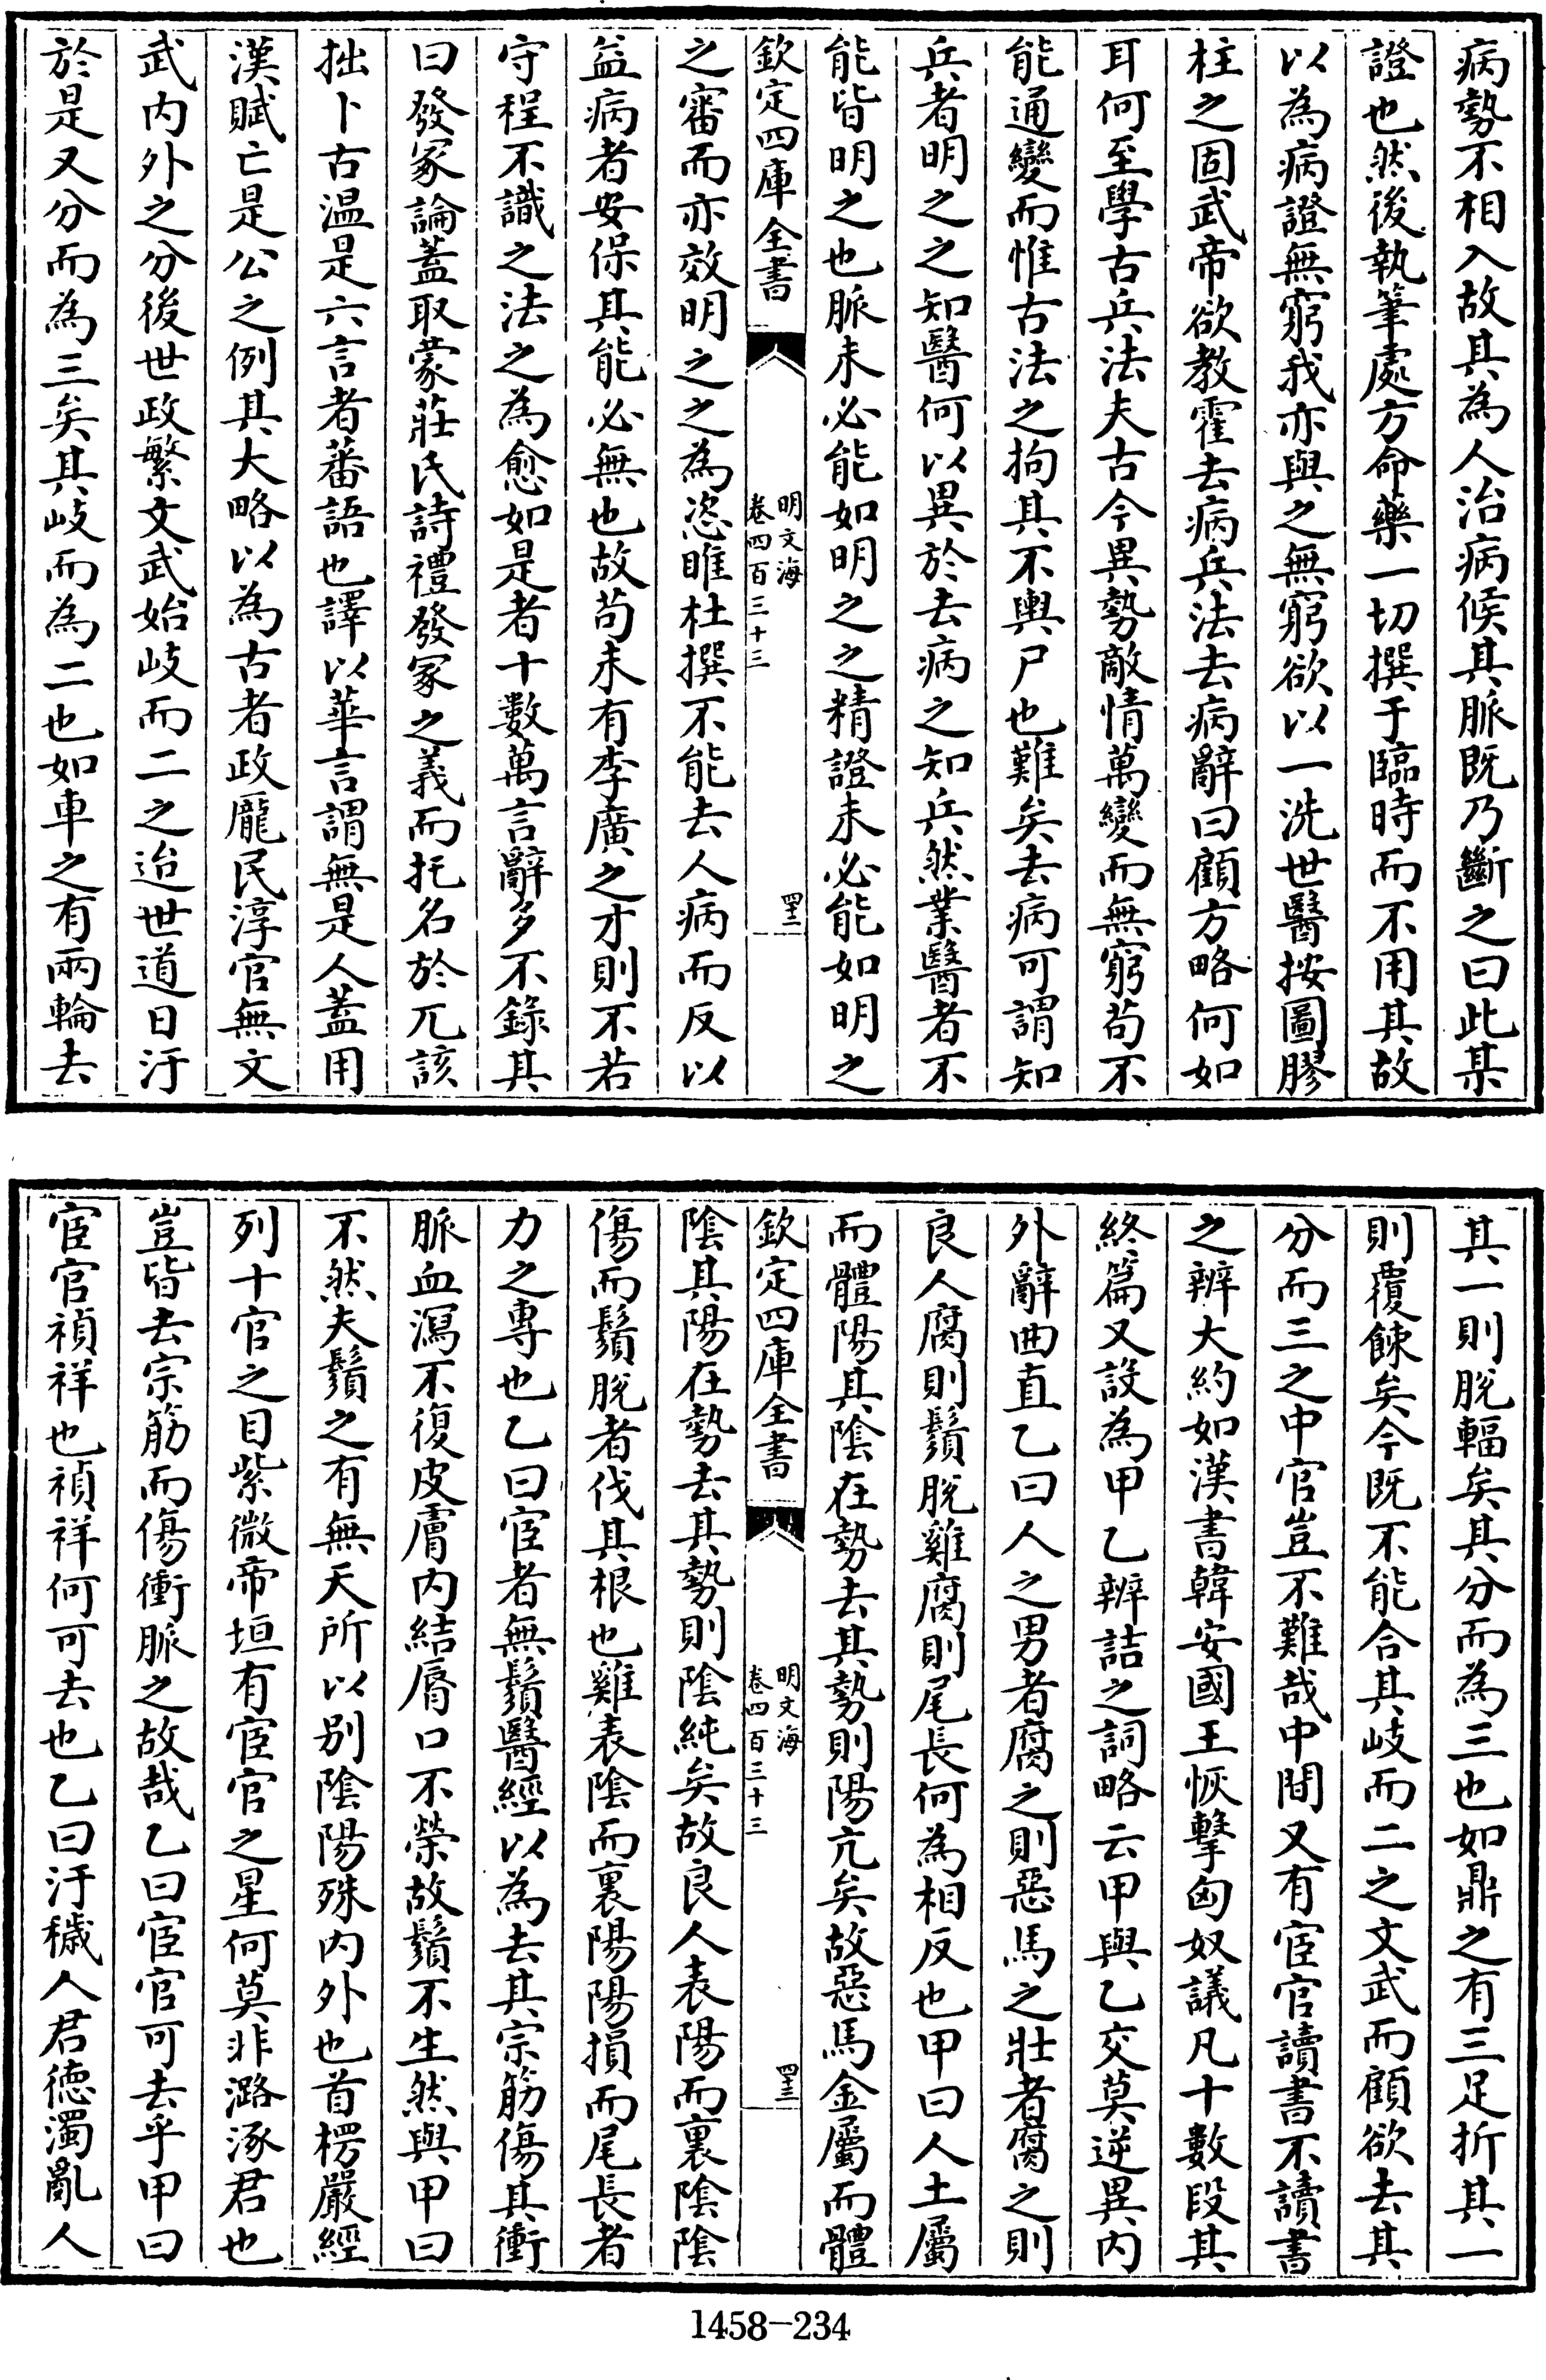 病勢不相入故其為人治病候其脈既乃斷之曰此某
證也然後執筆處方命藥一切撰于臨時而不用其故
以為病證無窮我亦與之無窮欲以一洗世醫按圖膠
柱之固武帝欲教霍去病兵法去病辭曰顧方略何如
耳何至學古兵法夫古今異勢敵情萬變而無窮茍不
能通變而惟古法之拘其不輿尸也難矣去病可謂知
兵者明之之知醫何以異於去病之知兵然業醫者不
能皆明之也脈未必能如明之之精證未必能如明之
欽定四庫全書
明文海
卷四百三十三
四十二
之審而亦效明之之為恣睢杜撰不能去人病而反以
益病者安保其能必無也故茍未有李廣之才則不若
守程不識之法之為愈如是者十數萬言辭多不錄其
曰發冢論蓋取蒙莊氏詩禮發冢之義而托名於兀該
拙卜古温是六言者蕃語也譯以華言謂無是人蓋用
漢賦亡是公之例其大略以為古者政龐民淳官無文
武内外之分後世政繁文武始岐而二之迨世道日汙
於是又分而為三矣其岐而為二也如車之有兩輪去
其一則脫輻矣其分而為三也如鼎之有三足折其一
則覆餗矣今既不能合其岐而二之文武而顧欲去其
分而三之中官豈不難哉中間又有宦官讀書不讀書
之辨大約如漢書韓安國王恢擊匈奴議凡十數段其
終篇又設為甲乙辨詰之詞略云甲與乙交莫逆異内
外辭曲直乙曰人之男者腐之則惡馬之壯者腐之則
良人腐則鬚脫雞腐則尾長何為相反也甲曰人土屬
而體陽其陰在勢去其勢則陽亢矣故惡馬金屬而體
欽定四庫全書
明文海
卷四百三十三
四十三
陰其陽在勢去其勢則陰純矣故良人表陽而裏陰陰
傷而鬚脫者伐其根也雞表陰而裏陽陽損而尾長者
力之專也乙曰宦者無鬚醫經以為去其宗筋傷其衝
脈血瀉不復皮膚内結脣口不榮故鬚不生然與甲曰
不然夫鬚之有無天所以别陰陽殊内外也首楞嚴經
列十官之目紫微帝垣有宦官之星何莫非潞涿君也
豈皆去宗筋而傷衝脈之故哉乙曰宦官可去乎甲曰
宦官禎祥也禎祥何可去也乙曰汙穢人君德濁亂人
1458-234